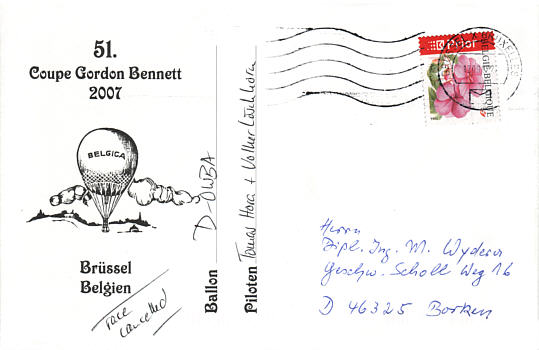 51.
Coupe Gordon Bennett
2007
BELGICA
Brüssel
Belgien
race
cancelled
Ballon D-OWBA
Piloten Tomas Hora + Volker Löschhorn
Prior
BELGIE-BELGIQUE
Herrn
Dipl. Ing. M. Wyderer
Geschw. Scholl Weg 16
D 46325 Borken